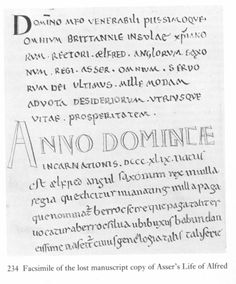 DOMINO MEO VENERABILI PIISSIMOQUE
OMNIUM BRITTANNIE INSULAE XPIANO
RUM. RECTORI. ÆLFRED. ANGLORUM SAXO
NUM. REGI. ASSER. OMNIUM. SERUO
RUM DEI ULTIMUS. MILLE MODAM
ADUOTA DESIDERIORUM UTRIUSQUE
VITAE. PROSPERITATEM.
ANNO DOMINICAE
INCARNATIONIS. DCCC.XLIX. natus
est ælfred angul saxonum rex in uilla
regia quae dicitur uuanating in illa paga
quae nominatur berrocscire quae paga taliter
uocatur a berroc silua ubi buxus habundan
tissime nascitur cuius genelogia tali serie
234 Facsimile of the lost manuscript copy of Asser's Life of Alfred